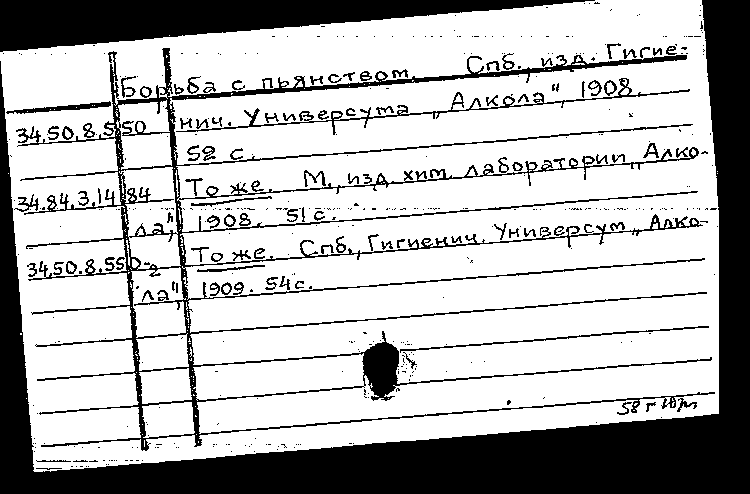 Борьба с пьянством. Спб., изд. Гигие-
34.50.8.550 нич. Универсума „Алкола", 1908.
52 с.
34.84.3.1484 То же. М., изд. хим. лаборатории „Алко-
ла", 1908. 51 с.
34.50.8.550-2 То же. Спб., Гигиенич. Универсум „Алко-
ла", 1909. 54 с.
58 г